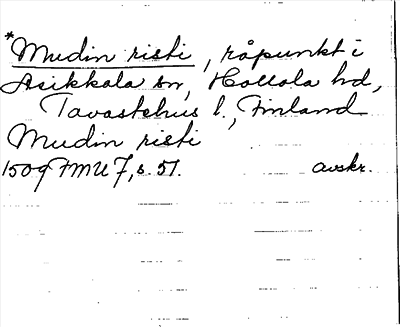 *Mudin risti, råpunkt i
Asikkala sn, Hollola hd,
Tavastehus l., Finland
Mudin risti
1509 FMU 7, s. 51. avskr.